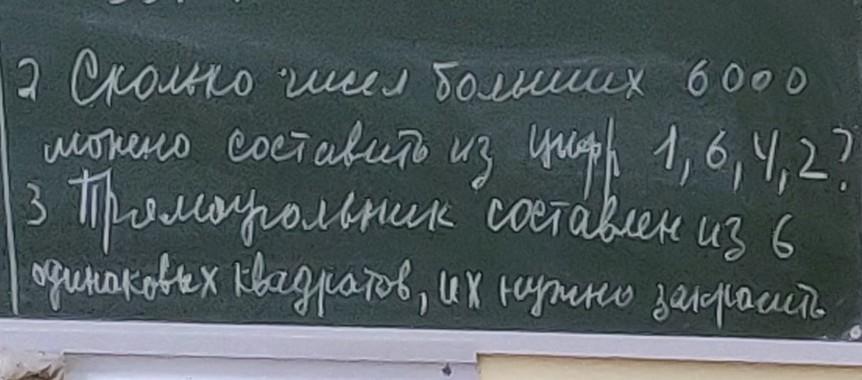 2 Сколько чисел больших 6000
можно составить из цифр 1, 6, 4, 2?
3 Прямоугольник составлен из 6
одинаковых квадратов, их нужно закрасить